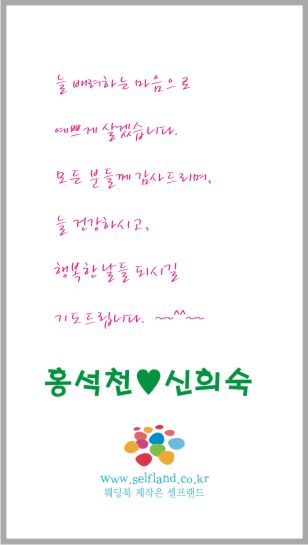 늘 배려하는 마음으로
예쁘게 살겠습니다.
모든 분들께 감사드리며,
늘 건강하시고,
행복한 날들 되시길
기도드립니다. ~~^^~~
홍석천♥신희숙
www.selfland.co.kr
웨딩북 제작은 셀프랜드